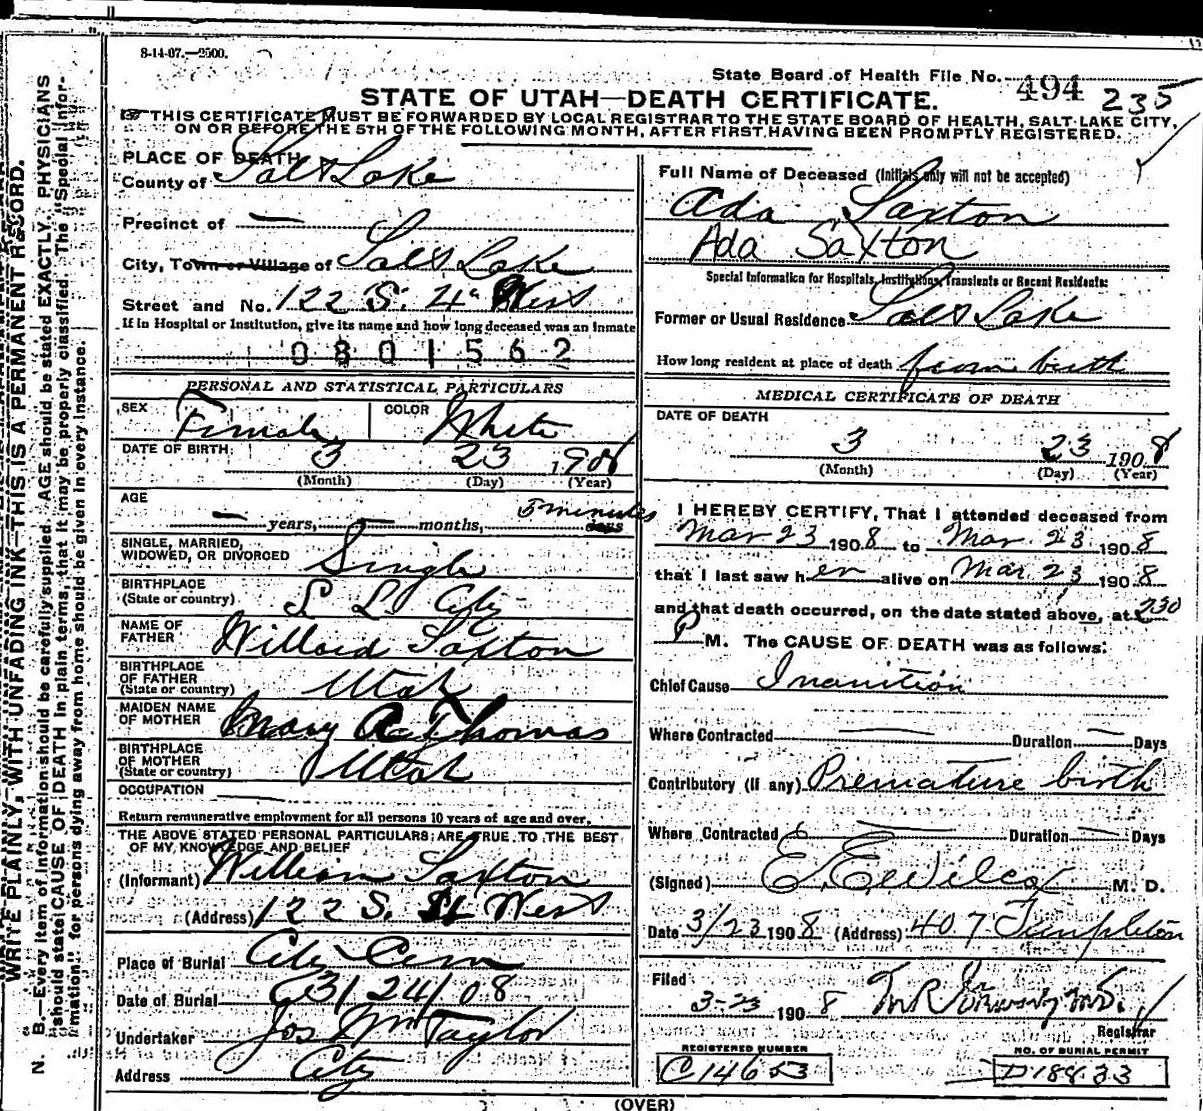 8-14-07.—2500.
State Board of Health File No. 494 235
STATE OF UTAH—DEATH CERTIFICATE.
THIS CERTIFICATE MUST BE FORWARDED BY LOCAL REGISTRAR TO THE STATE BOARD OF HEALTH, SALT LAKE CITY,
ON OR BEFORE THE 5TH OF THE FOLLOWING MONTH, AFTER FIRST HAVING BEEN PROMPTLY REGISTERED.
PLACE OF DEATH
County of Salt Lake
Precinct of —
City, Town or Village of Salt Lake
Street and No. 122 S. 4th West
If in Hospital or Institution, give its name and how long deceased was an inmate
0801562
PERSONAL AND STATISTICAL PARTICULARS
SEX Female COLOR White
DATE OF BIRTH 3 23 1908
(Month) (Day) (Year)
AGE
— years, — months, 5 minutes days
SINGLE, MARRIED,
WIDOWED, OR DIVORCED Single
BIRTHPLACE
(State or country) S L City
NAME OF
FATHER Willard Saxton
BIRTHPLACE
OF FATHER
(State or country) Utah
MAIDEN NAME
OF MOTHER Mary A Thomas
BIRTHPLACE
OF MOTHER
(State or country) Utah
OCCUPATION —
Return remunerative employment for all persons 10 years of age and over.
THE ABOVE STATED PERSONAL PARTICULARS ARE TRUE TO THE BEST
OF MY KNOWLEDGE AND BELIEF
(Informant) William Saxton
(Address) 122 S. 4 West
Place of Burial City Cem
Date of Burial 3/24/08
Undertaker Jos Wm Taylor
Address City
Full Name of Deceased (Initials only will not be accepted)
Ada Saxton
Ada Saxton
Special Information for Hospitals, Institutions, Transients or Recent Residents:
Former or Usual Residence Salt Lake
How long resident at place of death from birth
MEDICAL CERTIFICATE OF DEATH
DATE OF DEATH
3 23 1908
(Month) (Day) (Year)
I HEREBY CERTIFY, That I attended deceased from
Mar 23 1908 to Mar. 23 1908
that I last saw her alive on Mar 23 1908
and that death occurred, on the date stated above, at 230
P M. The CAUSE OF DEATH was as follows:
Chief Cause Inanition
Where Contracted — Duration — Days
Contributory (if any) Premature birth
Where Contracted — Duration — Days
(Signed) E. E. Wilcox M. D.
Date 3/23 1908 (Address) 407 Templeton
Filed
3-23 1908
Registrar
REGISTERED NUMBER
C14653
NO. OF BURIAL PERMIT
D18833
(OVER)
WRITE PLAINLY, WITH UNFADING INK—THIS IS A PERMANENT RECORD.
N. B.—Every item of information should be carefully supplied. AGE should be stated EXACTLY. PHYSICIANS
should state CAUSE OF DEATH in plain terms, that it may be properly classified. The "Special Infor-
mation" for persons dying away from home should be given in every instance.